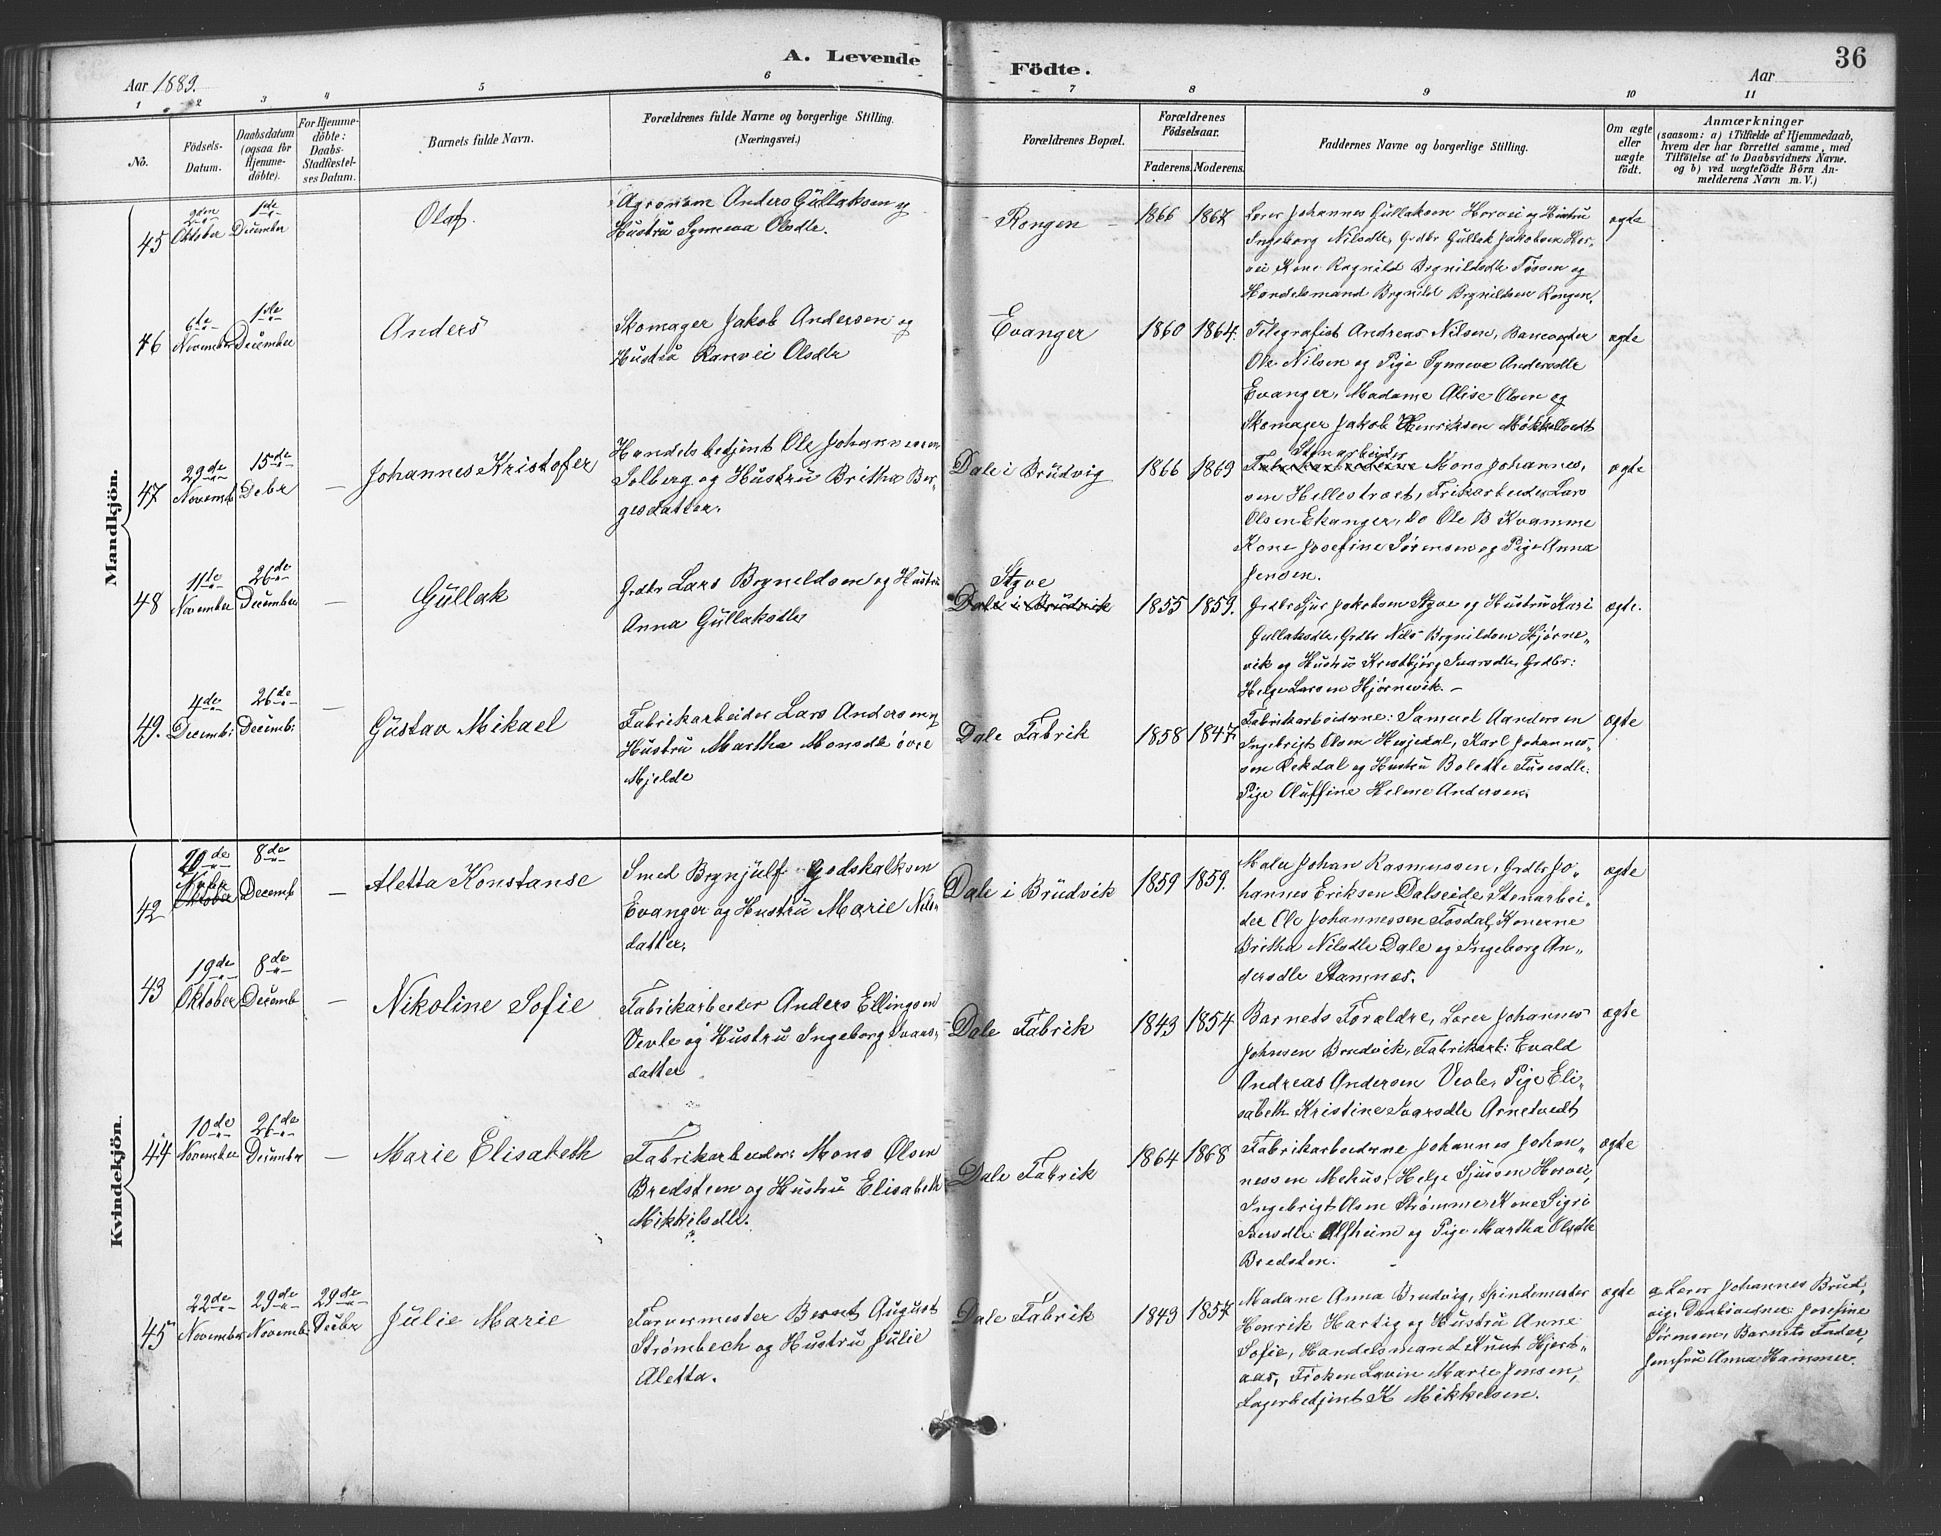 A. Levende Födte.
36
Aar 1889.
Aar
1 2 3 4 5 6 7 8 9 10 11
No.
Födsels-Datum.
Daabsdatum (ogsaa for Hjemme-döbte).
For Hjemme-döbte: Daabs-Stadfæstel-ses Datum.
Barnets fulde Navn.
Forældrenes fulde Navne og borgerlige Stilling.
(Næringsvei.)
Forældrenes Bopæl.
Forældrenes Födselsaar.
Faderens. Moderens.
Faddernes Navne og borgerlige Stilling.
Om ægte eller uægte født.
Anmærkninger
(saasom: a) i Tilfælde af Hjemmedaab,
hvem der har forrettet samme, med
Tilföielse af to Daabsvidners Navne.
og b) ved uægtefödte Börn An-
melderens Navn m. V.)
Mandkjön.
45
2den Oktober
1de December
Olaf.
Agronom Anders Gullaksen og
Hustru Synneva Olsdtr.
Rongen
1866 1867
Lærer Johannes Gullaksen Horvei og Hustru
Ingeborg Nilsdtr, Grdbr Gullak Jakobsen Hor-
vei Kone Ragnild Brynildsdtr Føssen og
Handelsmand Brynild Brynildsen Rongen.
ægte
46
6te November
1de December
Anders
Skomager Jakob Andersen og
Hustru Ranvei Olsdtr
Evanger
1860 1864.
Telegrafist Andreas Nilsen, Banevogter
Ole Nilsen og Pige Synneva Andersdtr
Evanger, Madame Alise Olsen og
Skomager Jakob Henriksen Møkkelvedt
ægte
47
29de Novemb
15de Debr
–
Johannes Kristofer
Handelsbetjent Ole Johannesen
Solberg og Hustru Britha Bør-
gesdatter.
Dale i Brüdvig
1866 1869
Stenarbeider
Fabrikarbeiderne Mons Johannes-
sen Hellestræt, Frikarbeider Lars
Olsen Ekanger, Do Ole B Kvamme
Kone Josefine Sørensen og Pige Anna
Jensen.
ægte
48
11te November
26de December
–
Gullak
Grdbr Lars Brynildsen og Hustru
Anna Gullaksdtr
Styve
Dale i Brüdvik
1855 1859.
Grdbr Sjur Jakobsen Styve og Hustru Kari
Gullaksdtr, Grdbr Nils Brynildsen Hjørne-
vik og Hustru Krestbjørg Ivarsdtr, Grdbr:
Helge Larsen Hjørnevik. –
ægte.
49.
4de Decemb:
26de Decemb:
–
Gustav Mikael
Fabrikarbeider Lars Andersen og
Hustru Martha Monsdtr øvre
Mjelde
Dale Fabrik
1858 1847
Fabrikarbeiderne: Samuel Aandersen
Ingebrigt Olsen Hesjedal, Karl Johannes-
sen Rekdal og Hustru Bolette Turesdtr.
Pige Oluffine Helene Andersen.
ægte
Kvindekjön.
42
20de Novbr Oktober
8de Decemb
–
Aletta Konstanse
Smed Brynjulf Godskalksen
Evanger og Hustru Marie Nils-
datter.
Dale i Brüdvik
1859 1859.
Maler Johan Rasmussen, Grdbr Jo-
hannes Eriksen Dalseide, Stenarbei-
der Ole Johannessen Fosdal, Konerne
Britha Nilsdtr Dale og Ingeborg An-
dersdtr Stamnes.
ægte
43
19de Oktober
8de Decemb
–
Nikoline Sofie
Fabrikarbeider Anders Ellingsen
Vevle og Hustru Ingeborg Ivars-
datter
Dale Fabrik
1843 1854
Barnets Forældre, Lærer Johannes
Johnsen Brudvik, Fabrikarb: Evald
Andreas Andersen Vevle, Pige Eli-
sabeth Kristine Ivarsdtr Arnetvedt
ægte
44
10de November
26de December
–
Marie Elisabeth
Fabrikarbeider: Mons Olsen
Bredsten og Hustru Elisabeth
Mikkelsdtr.
Dale Fabrik
1864 1868
Fabrikarbeiderne Johannes Johan-
nessen Mehus, Helge Sjursen Horvei,
Ingebrigt Olsen Strømme, Kone Sigri
Iversdtr. Alfheim og Pige Martha Olsdtr
Bredsten.
ægte
45
22de November
29de Novemb:
29de Decbr
Julie Marie
Farvermester Bernt August
Strømbech og Hustru Julie
Aletta.
Dale Fabrik
1843 1857
Madame Anna Brudvig, Spindemester
Henrik Hartig og Hustru Anne
Sofie, Handelsmand Knut Hjort-
aas, Frøken Lavin Marie Jensen,
Lagerbetjent K Mikkelsen.
ægte
a Lærer Johannes Brud-
vig, Daabsvidner Josefine
Sørensen, Barnets Fader,
Jomfru Anna Hammer.